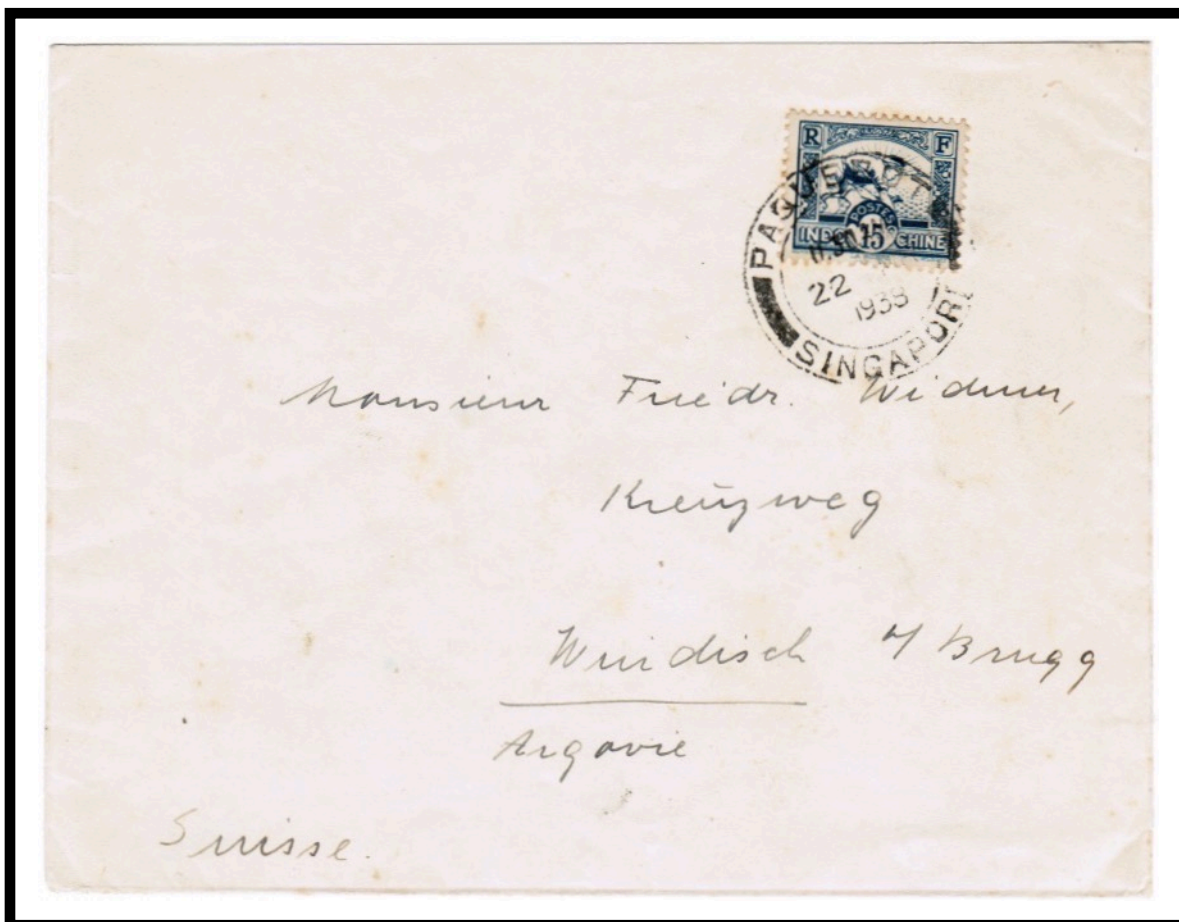 R F
POSTES
INDOCHINE
15
PAQUEBOT
22
1938
SINGAPORE
Monsieur Friedr. Widmer,
Kreuzweg
Windisch b/ Brugg
Argovie
Suisse.